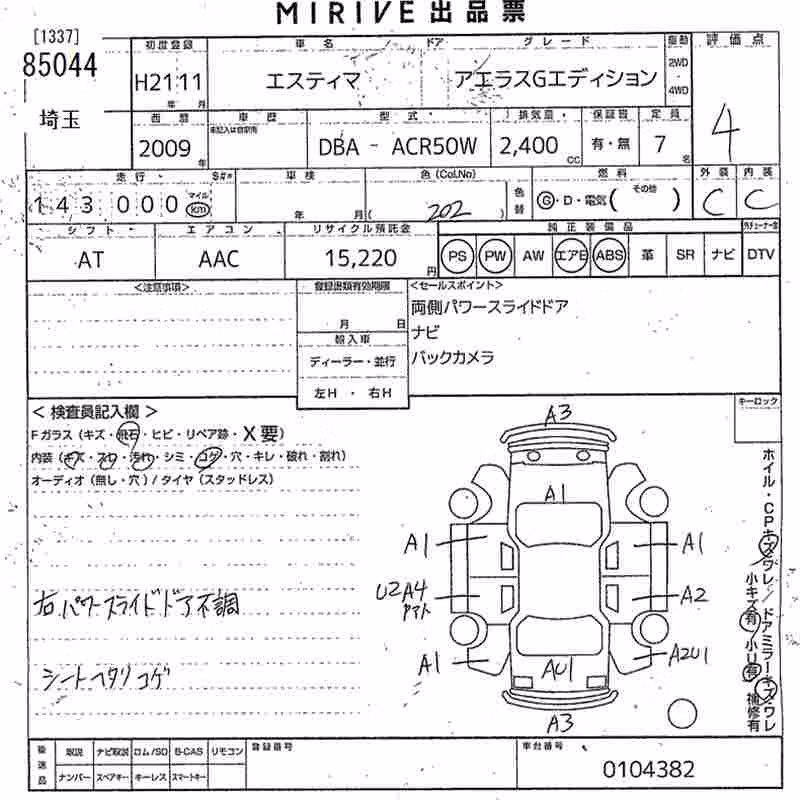 MIRIVE 出品票
[1337]
85044
埼玉
初度登録
H21 11
年 月
車名 / ドア
エスティマ
グレード
アエラスGエディション
駆動
2WD
4WD
評価点
4
西暦
2009 年
車歴
未記入は自家用
型式
DBA - ACR50W
排気量
2,400 CC
車検
有・無
定員
7 名
走行
143000
マイル
km
車検
年 月
色 (Col.No)
( 202 )
色替
燃料
G・D・電気( その他 )
外装
C
内装
C
シフト
AT
エアコン
AAC
リサイクル預託金
15,220 円
純正装備品
PS PW AW エアB ABS 革 SR ナビ DTV
<注意事項>
登録書類有効期限
月 日
輸入車
ディーラー・並行
左H ・ 右H
<セールスポイント>
両側パワースライドドア
ナビ
バックカメラ
キーロック
< 検査員記入欄 >
Fガラス (キズ・飛石・ヒビ・リペア跡・X要)
内装 (キズ・スレ・汚れ・シミ・コゲ・穴・キレ・破れ・割れ)
オーディオ (無し・穴) / タイヤ (スタッドレス)
右パワースライドドア不調
シートヘタリ コゲ
A3
A1
A1
A1
U2 A4
A2
A1
AU1
A2U1
A3
ホイル・CPキズワレ / ドアミラーキズワレ
小キズ有 / 小U有 補修有
後送品
取説 ナビ取説 ロム/SD B-CAS リモコン
ナンバー スペアキー キーレス スマートキー
登録番号
車台番号
0104382